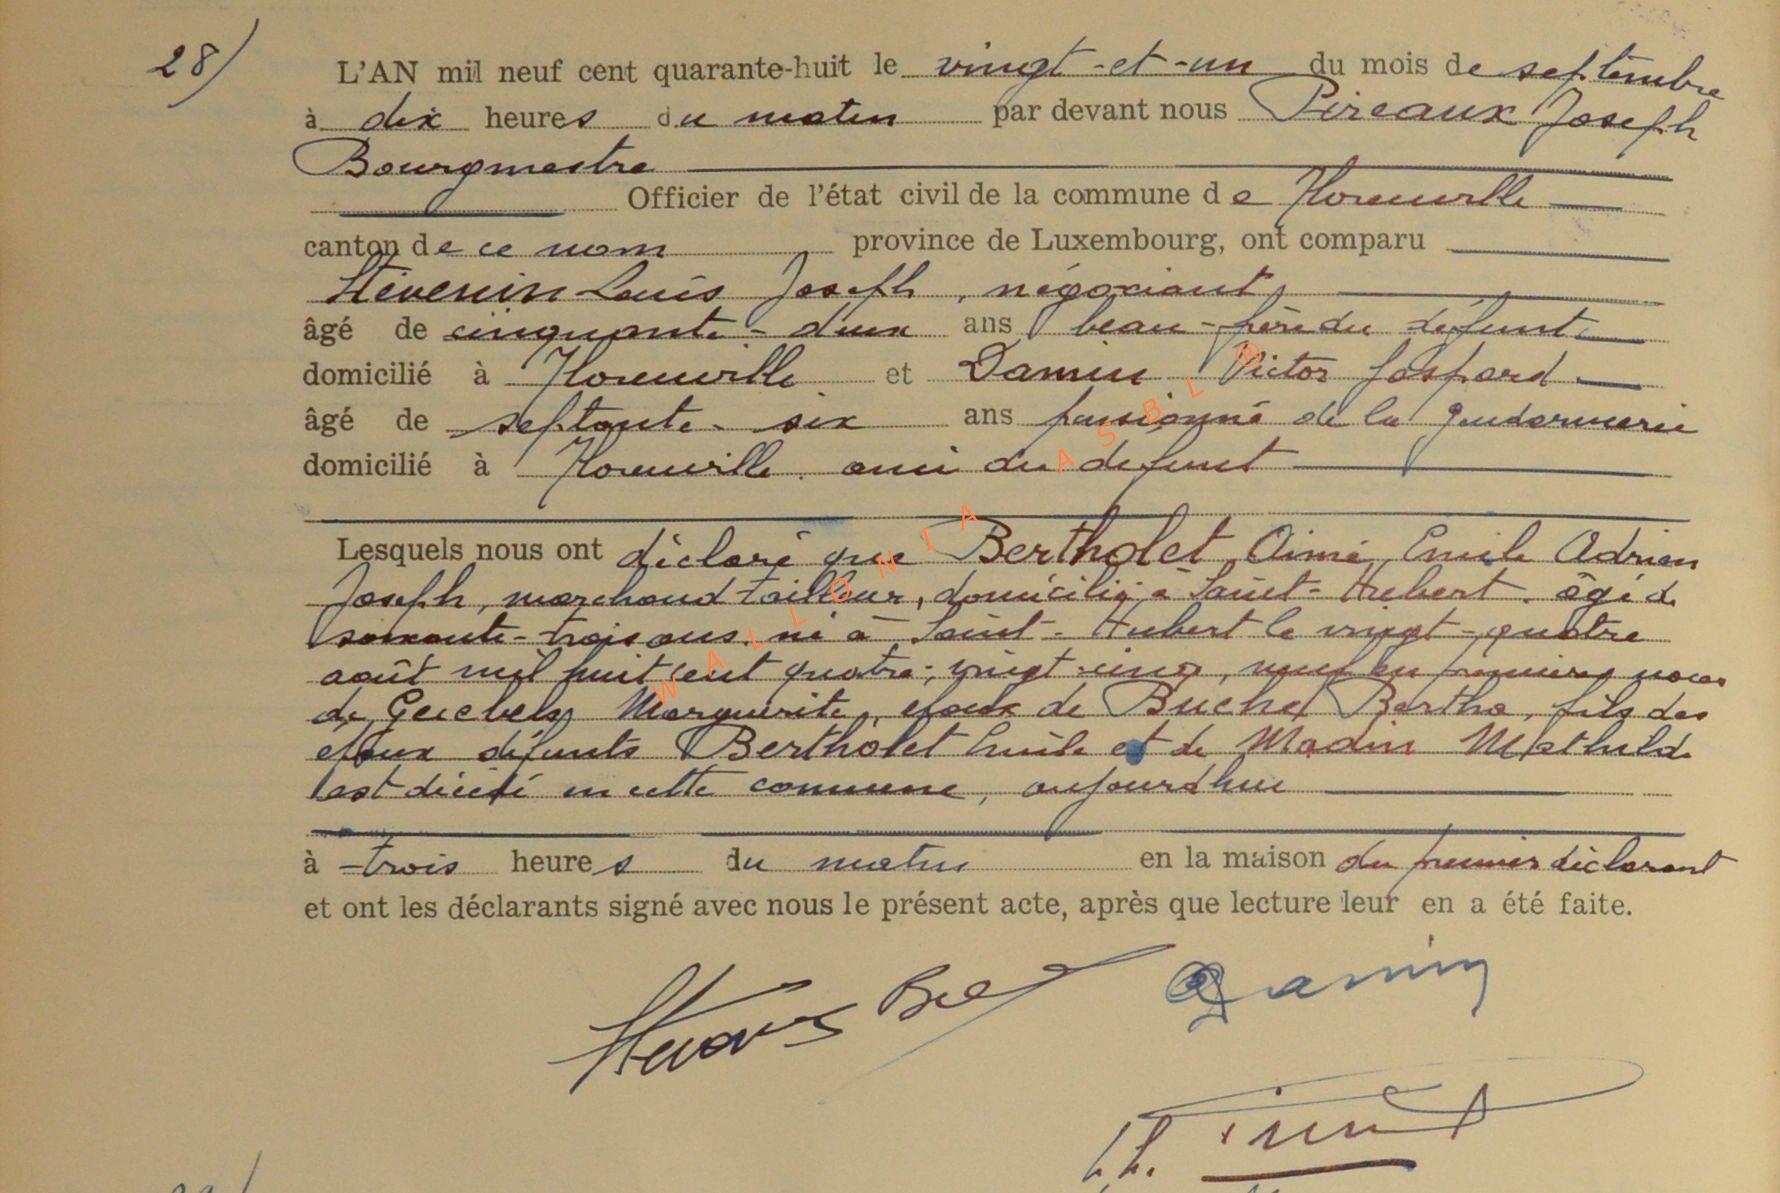 28)
L'AN mil neuf cent quarante-huit le vingt-et-un du mois de septembre
à dix heures du matin par devant nous Pireaux Joseph
Bourgmestre
Officier de l'état civil de la commune de Florenville
canton de ce nom province de Luxembourg, ont comparu
Stévenin Louis Joseph, négociant
âgé de cinquante-deux ans beau-frère du défunt
domicilié à Florenville et Damin Victor Gaspard
âgé de septante-six ans pensionné de la gendarmerie
domicilié à Florenville ami du défunt
Lesquels nous ont déclaré que Bertholet Aimé, Emile Adrien
Joseph, marchand tailleur, domicilié à Saint-Hubert, âgé de
soixante-trois ans né à Saint-Hubert le vingt-quatre
août mil huit cent quatre-vingt-cinq, veuf en premières noces
de Marguerite, époux de Buchet Bertha, fils des
époux défunts Bertholet Emile et de Madin Mathilde
est décédé en cette commune, aujourd'hui
à trois heures du matin en la maison du premier déclarant
et ont les déclarants signé avec nous le présent acte, après que lecture leur en a été faite.
Damin
WALLONIA ASBL ®